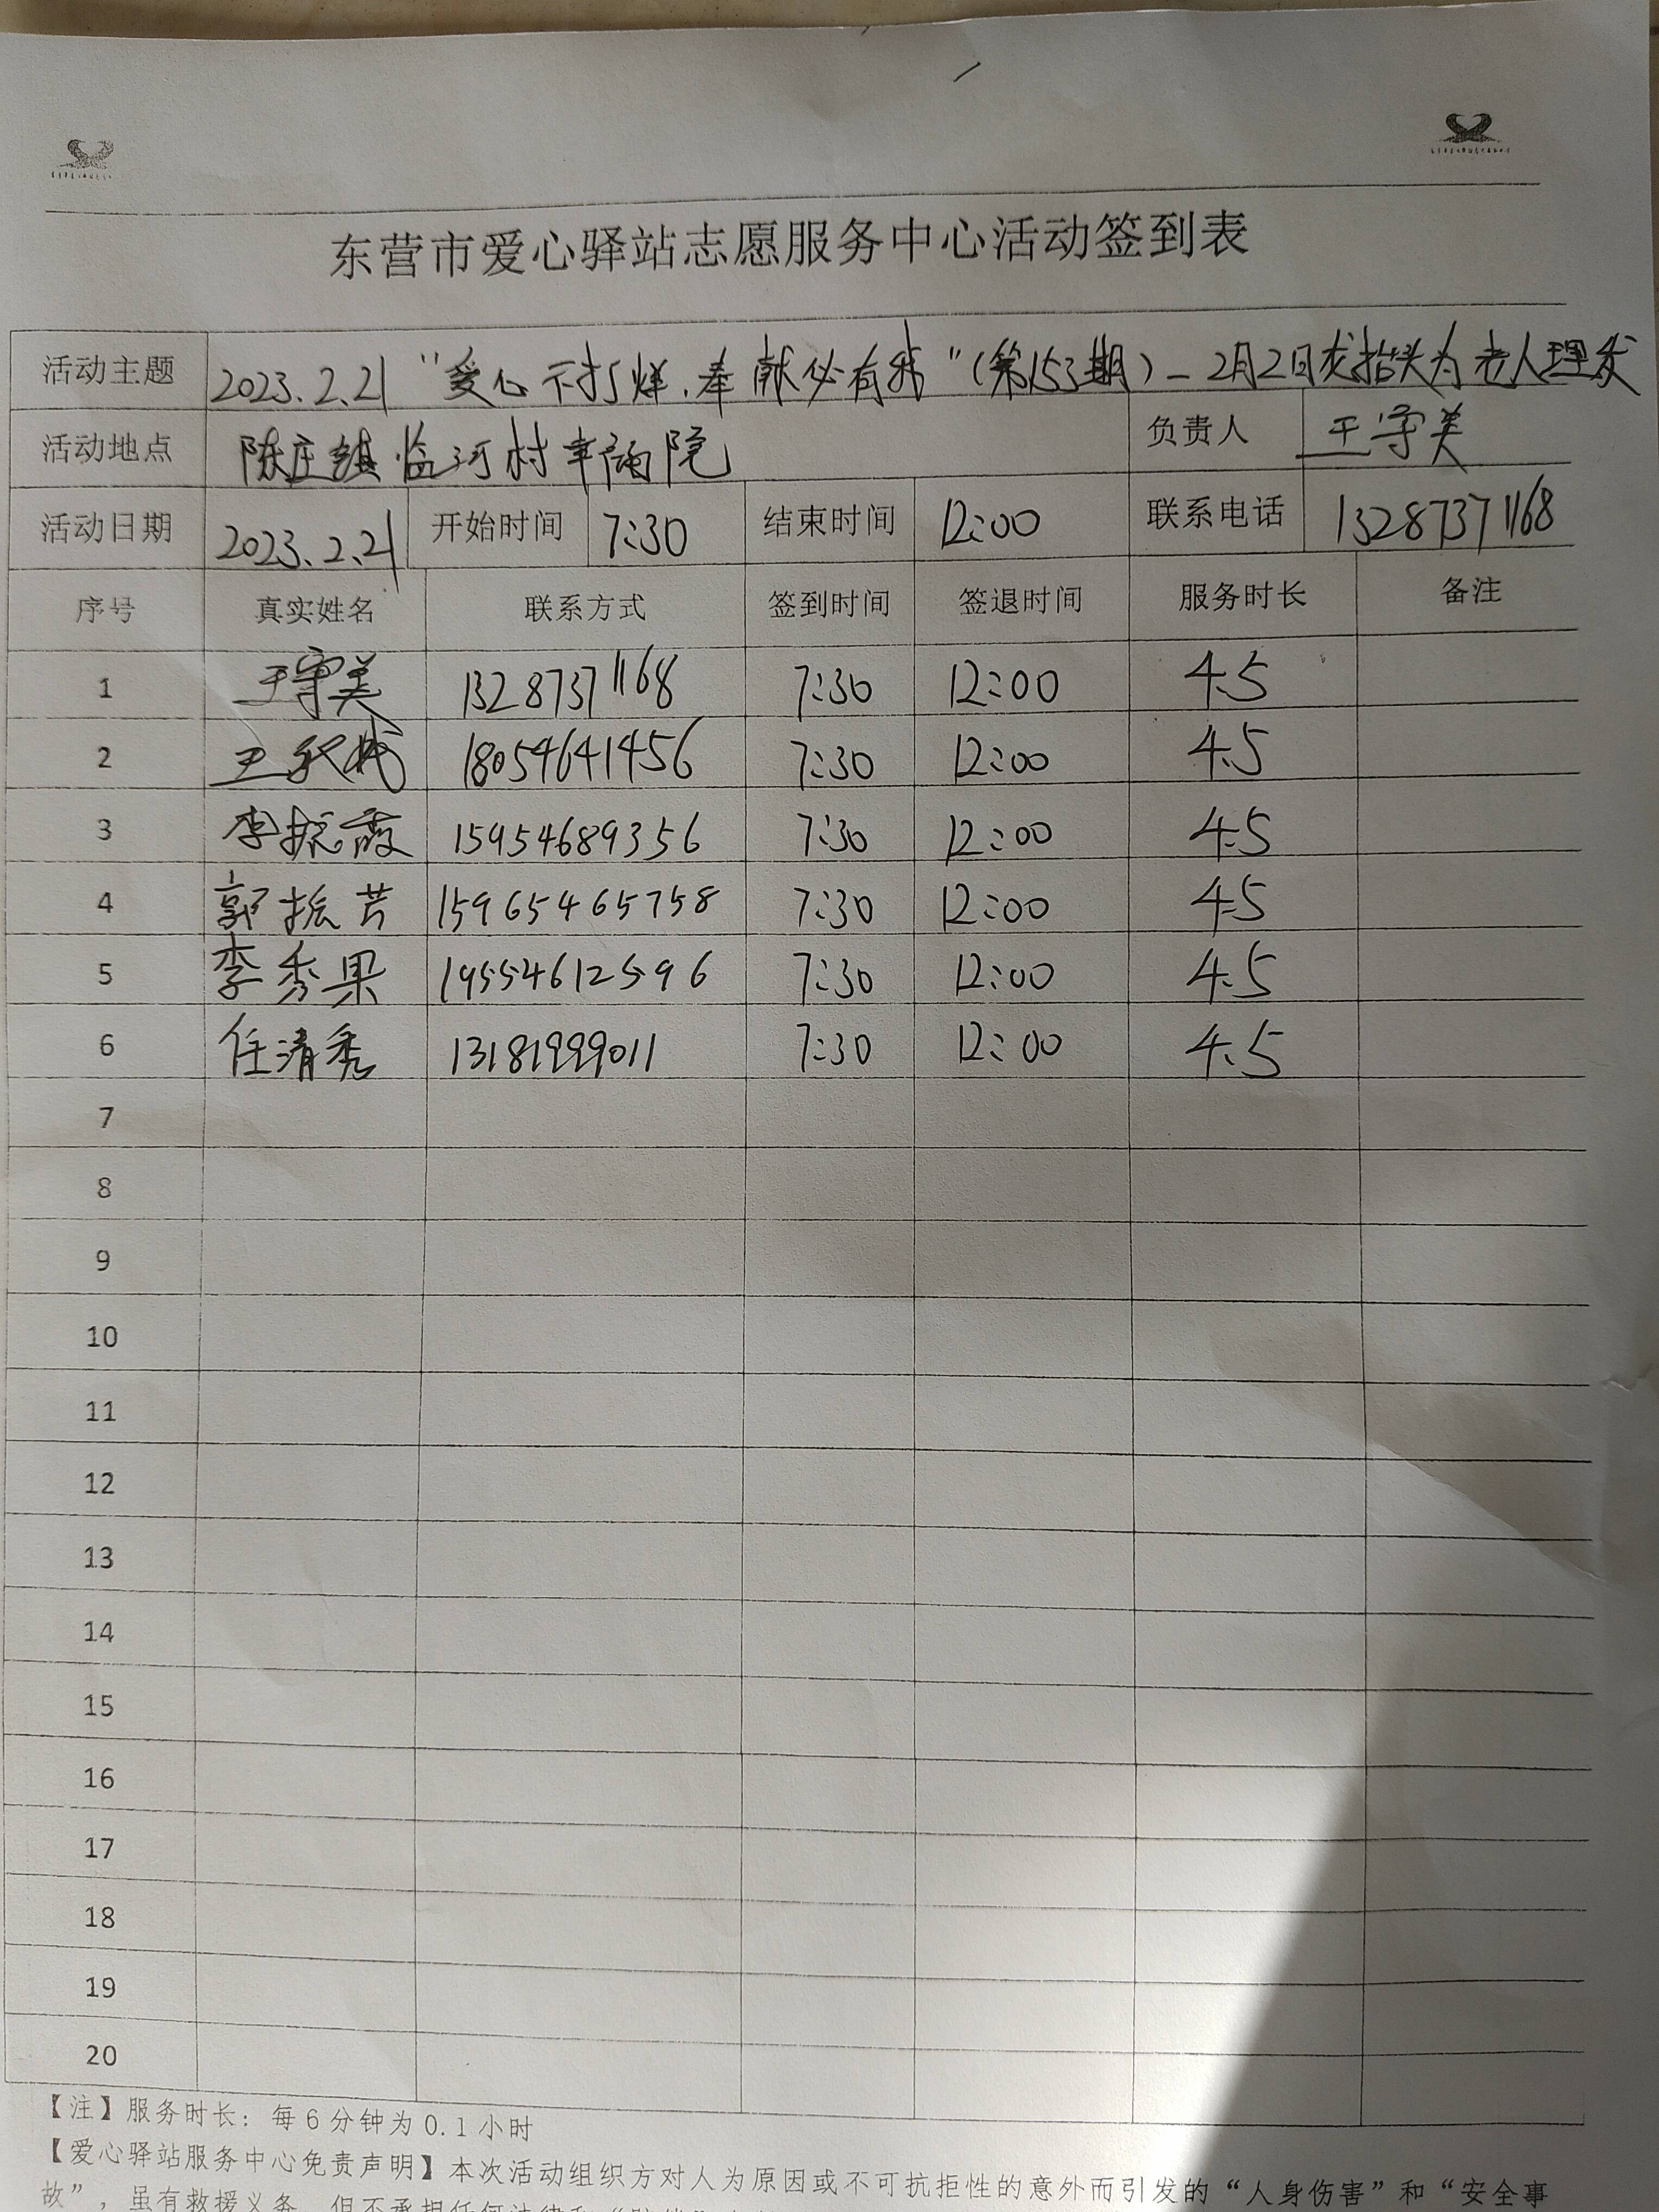 东营市爱心驿站志愿服务中心活动签到表
活动主题 2023.2.21 "爱心不打烊.奉献必有我"(第153期)-2月2日龙抬头为老人理发
活动地点 陈庄镇临河村幸福院 负责人 王守美
活动日期 2023.2.21 开始时间 7:30 结束时间 12:00 联系电话 13287371168
序号 真实姓名 联系方式 签到时间 签退时间 服务时长 备注
1 王守美 13287371168 7:30 12:00 4.5
2 王 18054641456 7:30 12:00 4.5
3 李振霞 15954689356 7:30 12:00 4.5
4 郭振芳 15965465758 7:30 12:00 4.5
5 李秀果 19554612596 7:30 12:00 4.5
6 任清秀 13181999011 7:30 12:00 4.5
7
8
9
10
11
12
13
14
15
16
17
18
19
20
【注】服务时长：每6分钟为0.1小时
【爱心驿站服务中心免责声明】本次活动组织方对人为原因或不可抗拒性的意外而引发的“人身伤害”和“安全事
故”，虽有救援义务，但不承担任何法律和